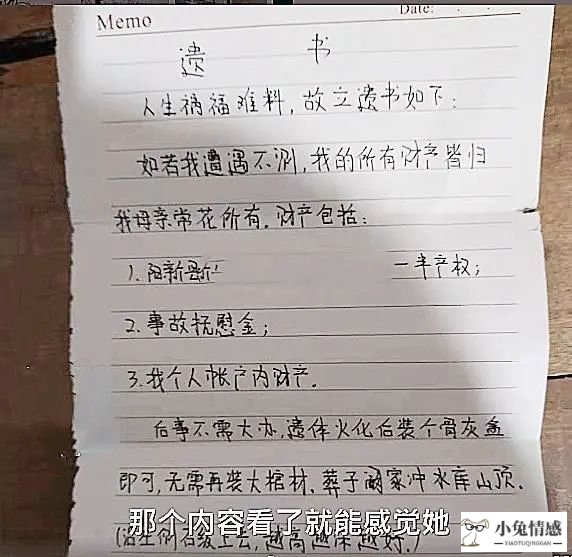 Memo Date:
遗 书
人生祸福难料,故立遗书如下:
如若我遭遇不测,我的所有财产皆归
我母亲常花所有.财产包括:
1.阳新 一半产权;
2.事故抚慰金;
3.我个人帐户内财产.
后事不需大办,遗体火化后装个骨灰盒
即可,无需再装大棺材.葬于阚家冲水库山顶.
那个内容看了就能感觉她
小兔情感
XIAOTUQINGGAN